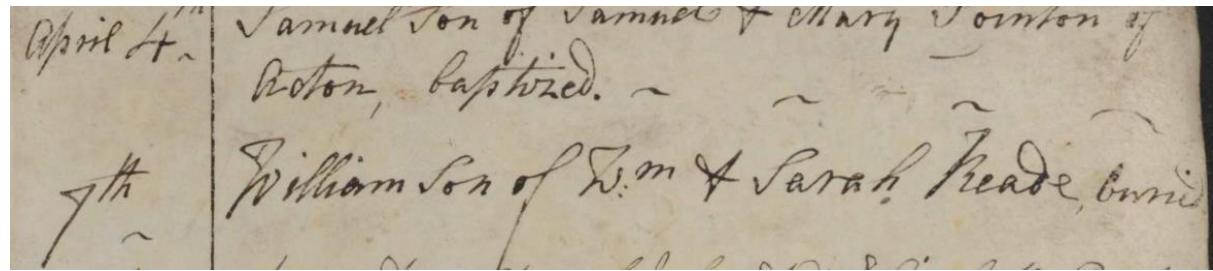 April 4th Samuel Son of Samuel & Mary Pointon of
Acton, baptized.
7th William Son of Wm & Sarah Reade, buried